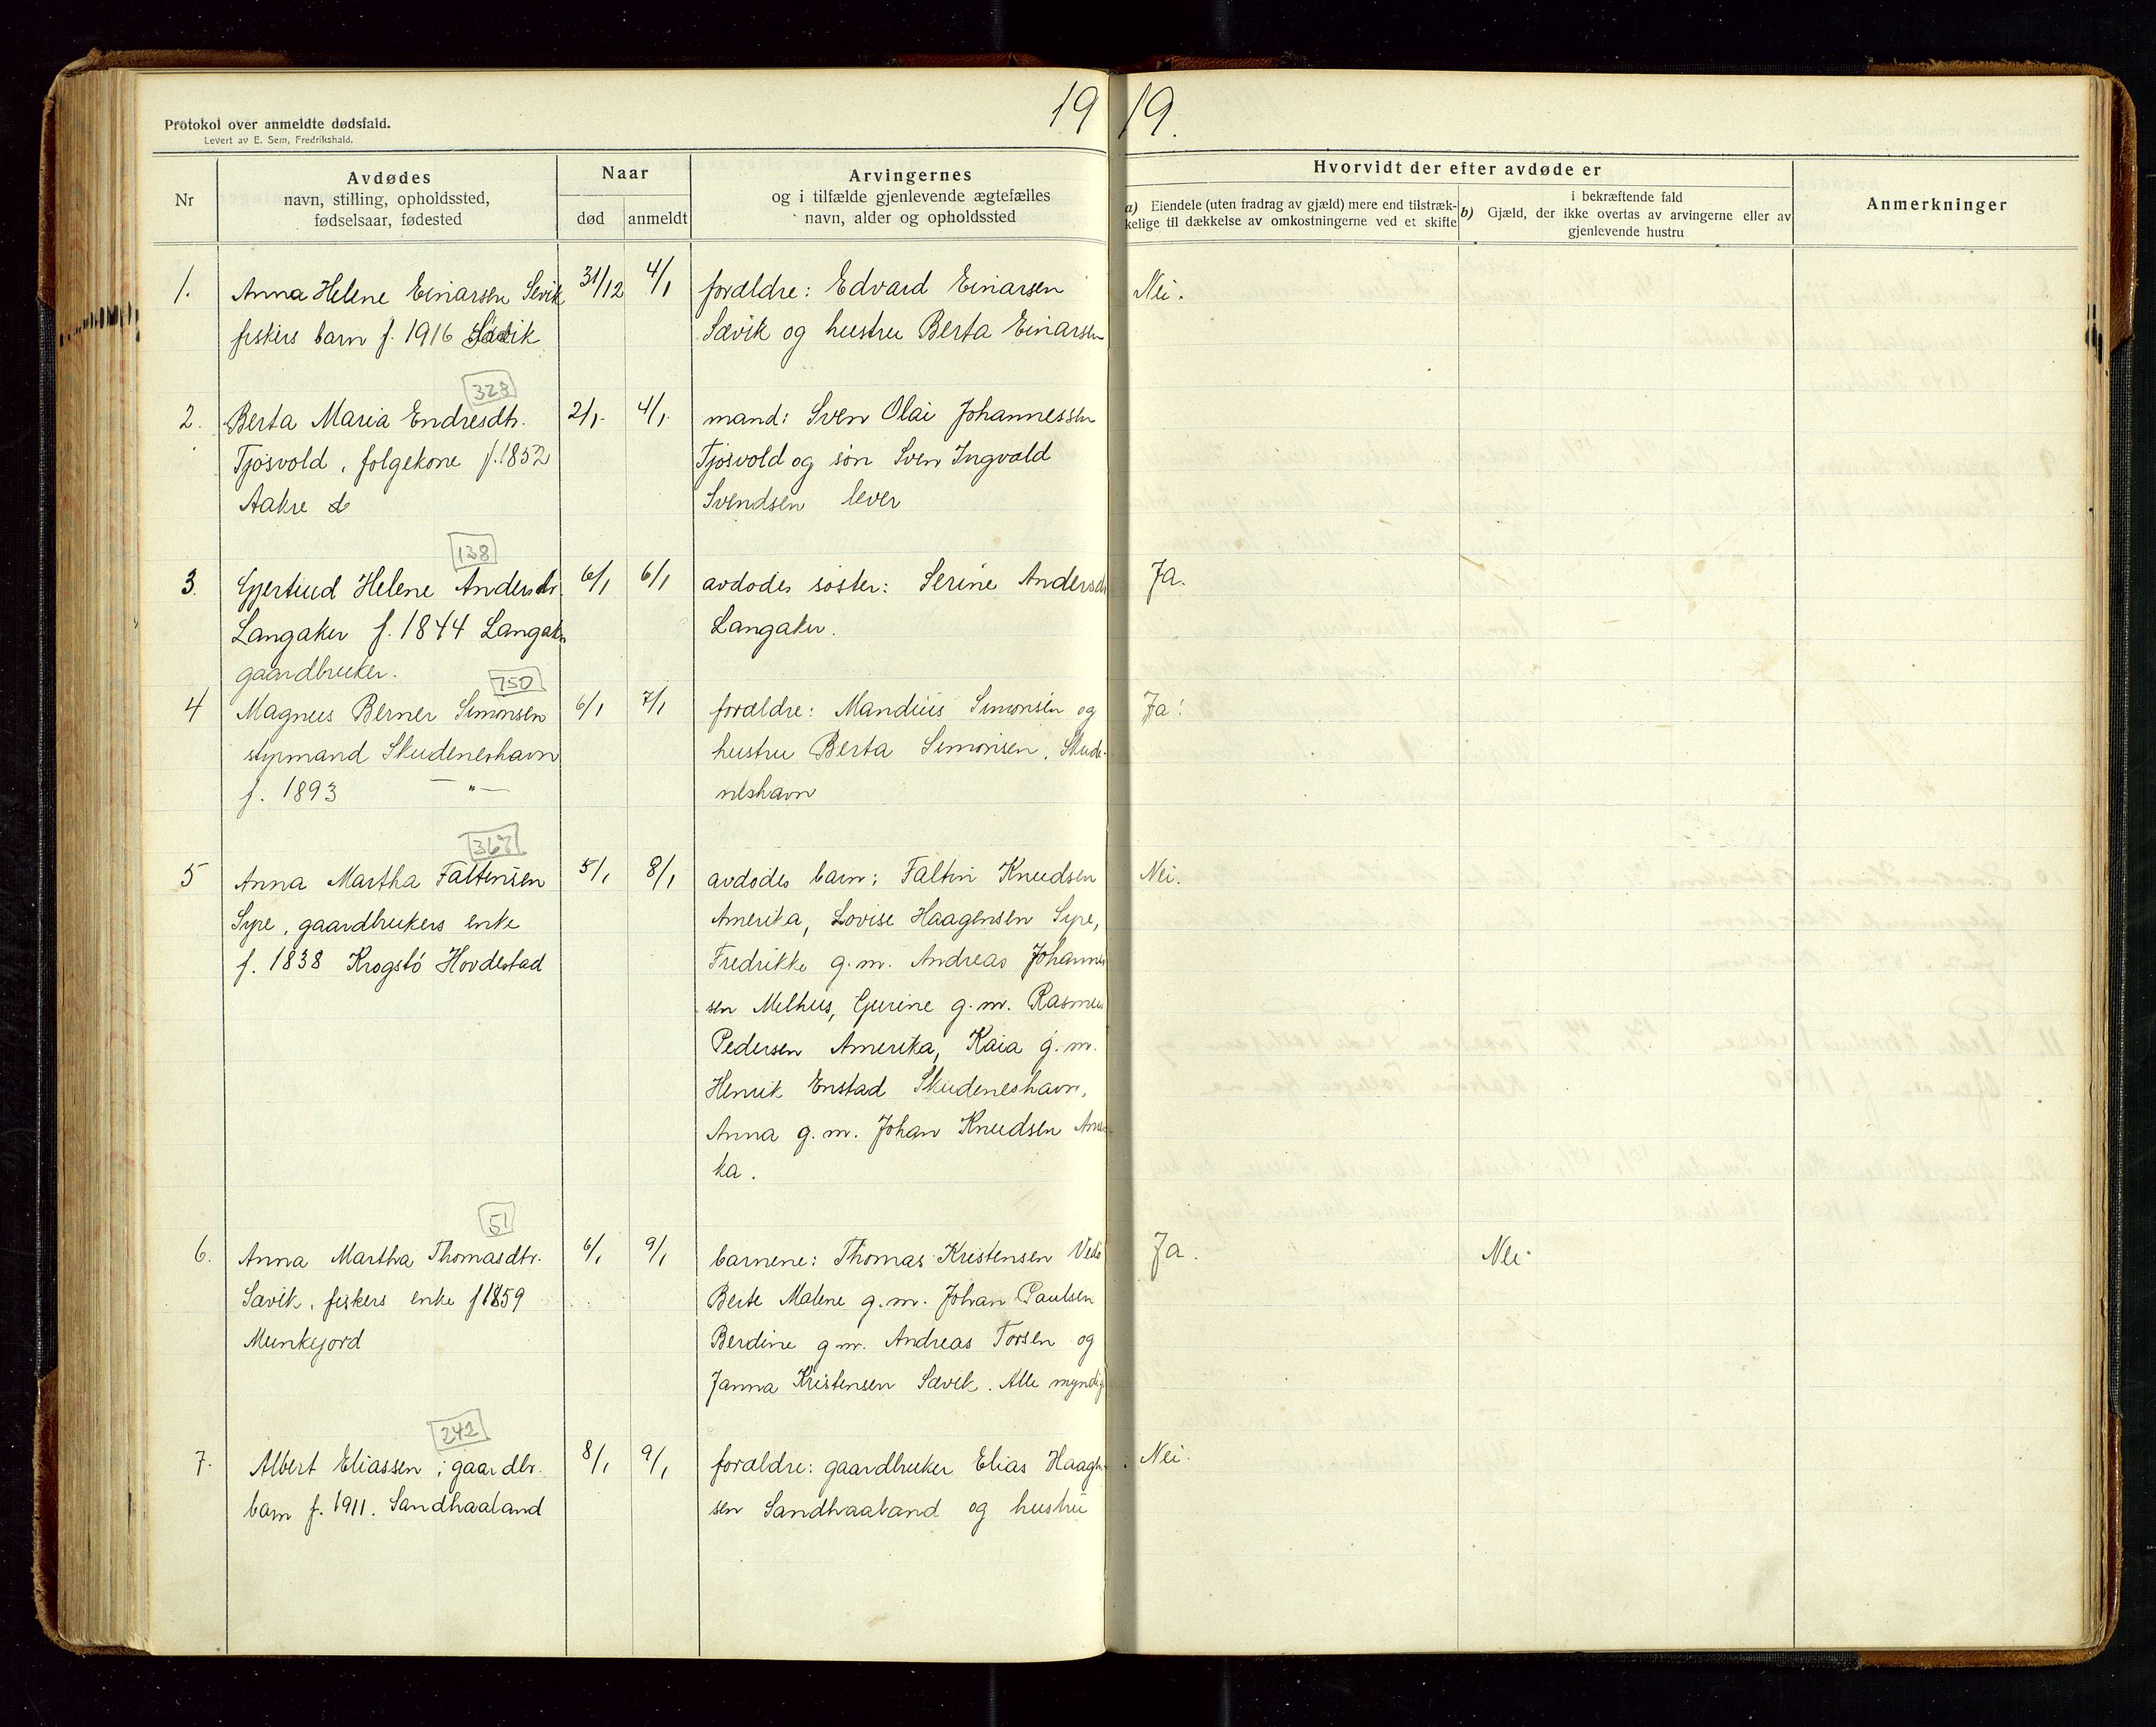 19 19.
Protokol over anmeldte dødsfald.
Levert av E. Sem, Fredrikshald.
Nr
Avdødes
navn, stilling, opholdssted,
fødselsaar, fødested
Naar
død
anmeldt
Arvingernes
og i tilfælde gjenlevende ægtefælles
navn, alder og opholdssted
Hvorvidt der efter avdøde er
a) Eiendele (uten fradrag av gjæld) mere end tilstræk-
kelige til dækkelse av omkostningerne ved et skifte
i bekræftende fald
b) Gjæld, der ikke overtas av arvingerne eller av
gjenlevende hustru
Anmerkninger
1.
Anna Helene Einarsen Sevik
fiskers barn f. 1916 Sævik
31/12
4/1
forældre: Edvard Einarsen
Sævik og hustru Berta Einarsen
Nei.
328
2.
Berta Maria Endresdtr.
Tjøsvold, folgekone f. 1852
Aakre
2/1.
4/1.
mand: Sven Olai Johannessen
Tjosvold og søn Sven Ingvald
Svendsen lever
138
3.
Gjertrud Helene Andersdtr.
Langaker f. 1844 Langaker
gaardbruker.
6/1
6/1
avdodes søster: Serine Andersdtr
Langaker.
Ja.
750
4
Magnus Berner Simonsen
styrmand Skudeneshavn
f. 1893 — " —
6/1
7/1
forældre: Mandius Simonsen og
hustru Berta Simonsen, Skude-
neshavn
Ja!
367
5
Anna Martha Faltinsen
Syre, gaardbrukers enke
f. 1838 Krogstö Hovdestad
5/1
8/1
avdodes barn: Faltin Knudsen
Amerika, Lovise Haagensen Syre,
Fredrikke g.m. Andreas Johannes
sen Melhus, Gurine g.m. Rasmus
Pedersen Amerika, Kaia g.m.
Henrik Enstad Skudeneshavn,
Anna g.m. Johan Knudsen Ameri
ka.
Nei.
51
6.
Anna Martha Thomasdtr.
Sævik, fiskers enke f 1859
Munkejord
6/1
9/1
barnene: Thomas Kristensen Vedø
Berte Malene g.m. Johan Paulsen
Berdine g.m. Andreas Torsen og
Janna Kristensen Sævik. Alle myndig
Ja.
Nei.
242
7.
Albert Eliassen, gaardbr.
barn f. 1911. Sandhaaland
8/1
9/1
forældre: gaardbruker Elias Haagen-
sen Sandhaaland og hustru
Nei.